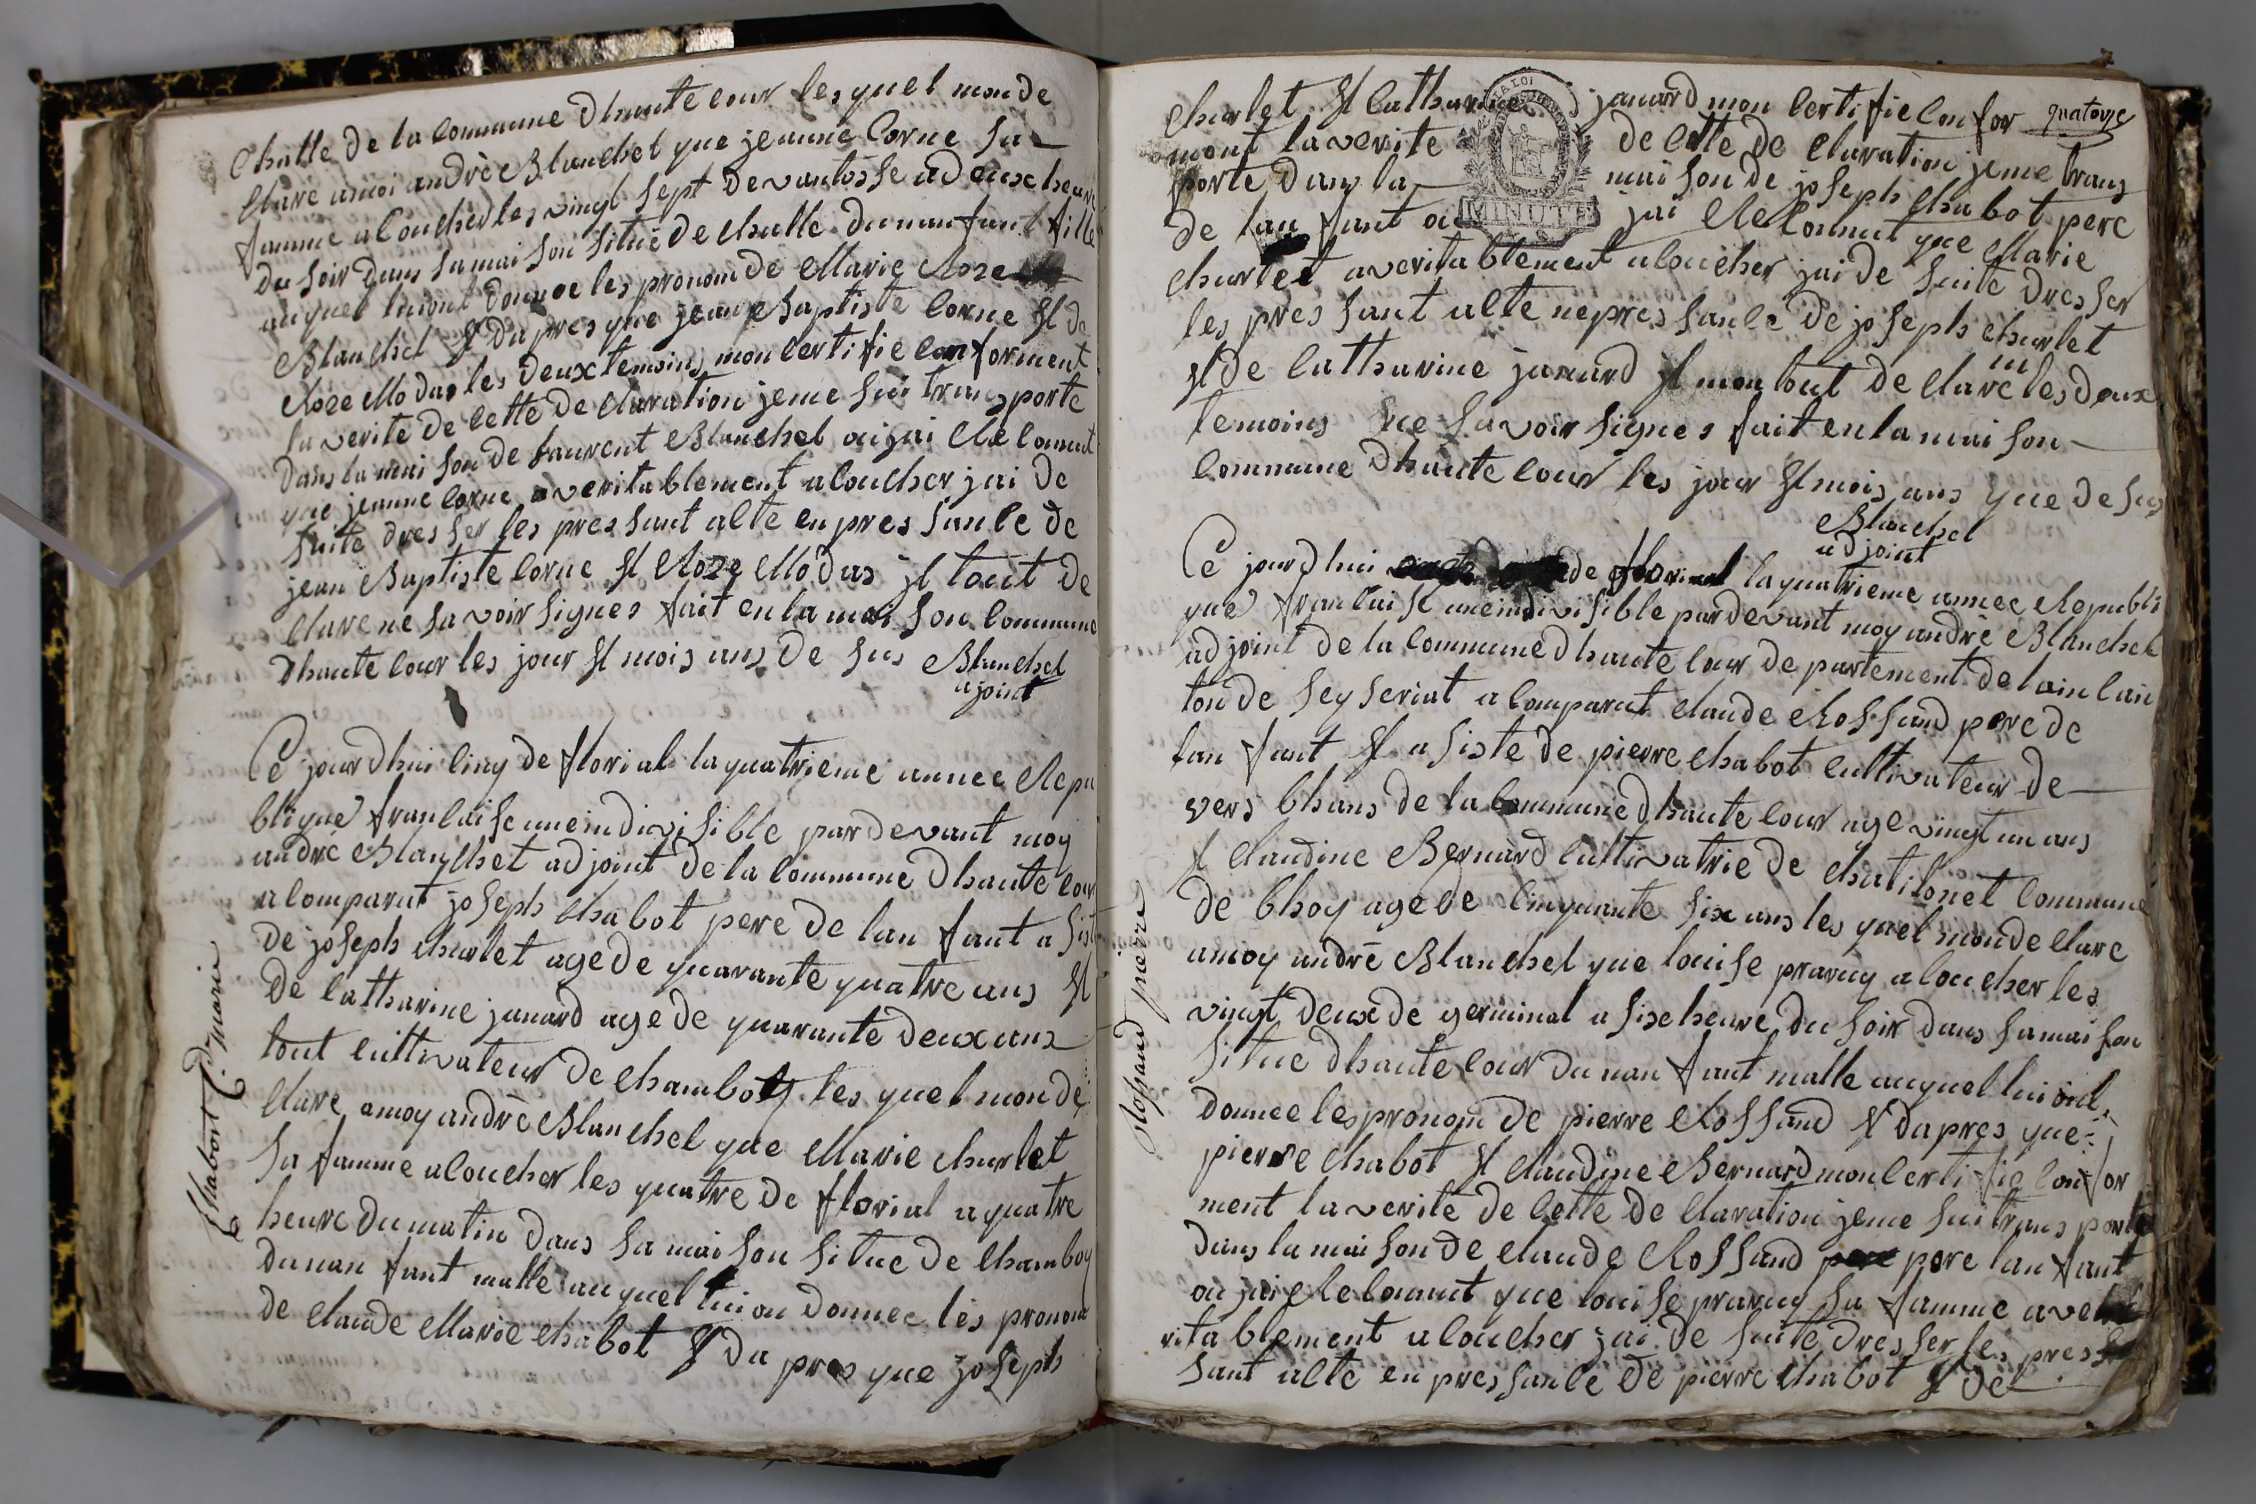 Challe de la Commune dhaute cour les quel mon de
clare amoi andrè Blanchet que jeanne Corne sa
famme a coucher les vingt sept devantosse a deux heure
du soir dans sa mai son situé de challe du nan fant fille
auquel lui ont donnee les pronom de Marie Roze
Blanchet & Da pres que jean Baptiste Corne & de
Roze Modas les deux temoins mon certifie conforment
la verite de cette de claration jeme sui trans porte
dans la mai son de laurent Blanchet ou jai Re connut
que jeanne corne a veritablement a coucher jai de
suite dres ser les pres sant acte en pres sance de
jean Baptiste corne & Roze Modas & tout de
clare ne sa voir signer fait en la mai son commune
dhaute cour les jour & mois ans de sus Blanchet
ajoint
Ce jourdhui cinq de florial la quatrieme annee Repu
blique francaise une indivisible par devant moy
andrè Blanchet adjoint de la commune dhaute cour
a comparut joseph chabot pere de lan fant a sist
de joseph charlet age de quarante quatre ans &
de catharine janard age de quarante deux ans
tout cultivateur de chamboy les quel mon de
clare amoy andrè Blanchet que Marie charlet
sa famme a coucher les quatre de florial a quatre
heure du matin dans sa mai son situe de chamboy
du nan fant malle au quel lui on donnee les pronom
de claude Marie chabot & da pres que joseph
Chabot C.de marie
quatorze
charlet & catharine janard mon certifie confor
mont la verite de cette de claration jeme trans
porte dans la mai son de joseph chabot pere
de lan fant ou jai Re connut que Marie
charlet a veritablement a coucher jai de suite dres ser
les pres sant acte ne pres sance de joseph charlet
& de catharine janard & mon tout de clare les deux
temoins ne sa voir signer fait en la mai son
commune dhaute cour les jour & mois ans que de sus
Blanchet
adjoint
LA LOI
MINUTE
Ce jourdhui de florial la quatrieme annee Republi
que francaise une indivisible par devant moy andrè Blanchet
adjoint de la commune dhaute cour de partement de lain can
ton de sey seriat a comparut claude Rossand pere de
lan fant & a siste de pierre chabot cultivateur de
vers bhans de la commune dhaute cour age vingt un ans
& claudine Bernard cultivatrie de chatilonet commune
de bhoy age de cinquante six ans les quel mon de clare
amoy andrè Blanchet que louise pravuy a coucher les
vingt deux de germinal a sixe heure du soir dans sa mai son
situe dhaute cour du nan fant malle auquel lui ont
donnee les pronom de pierre Rossand & da pres que
pierre chabot & claudine Bernard mon certi fie confor
ment la verite de cette de claration jeme sui trans porte
dans la mai son de claude Rossand pere pere lan fant
ou jai Re connut que louise pravuy sa famme a ve
rita blement a coucher jai de suite dres ser les pres
sant acte en pres sance de pierre chabot & de
Rossand pierre